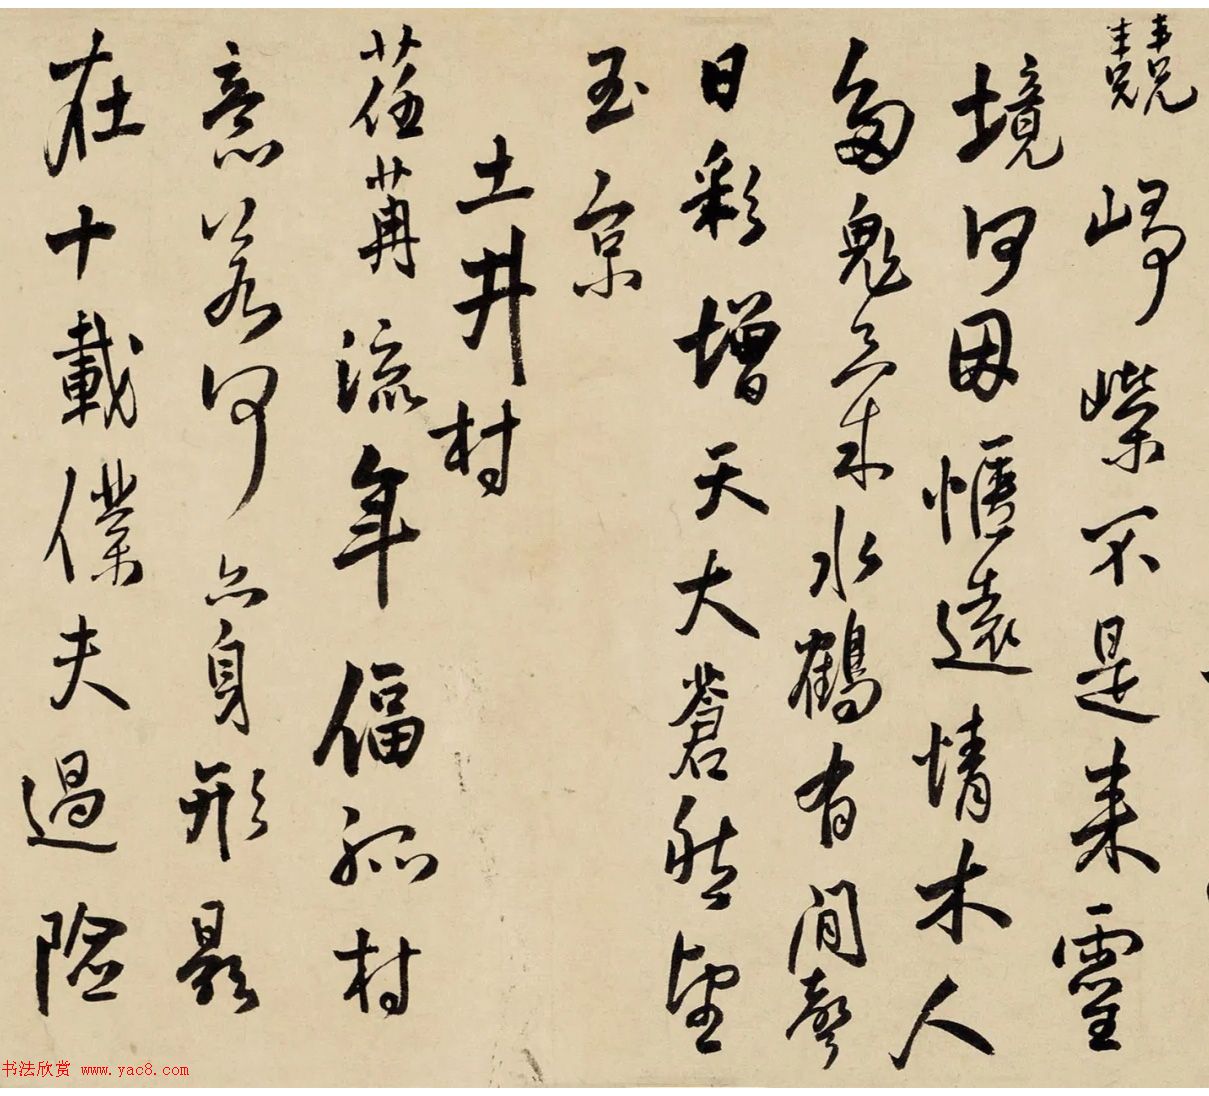 兢崢不是來靈
境何因愜遠情木人
多鬼氣水鶴有間聲
日彩增天大蒼然望
玉京
土井村
荏苒流年偪孤村
意若何分身形影
在十載僕夫過險
书法欣赏 www.yac8.com